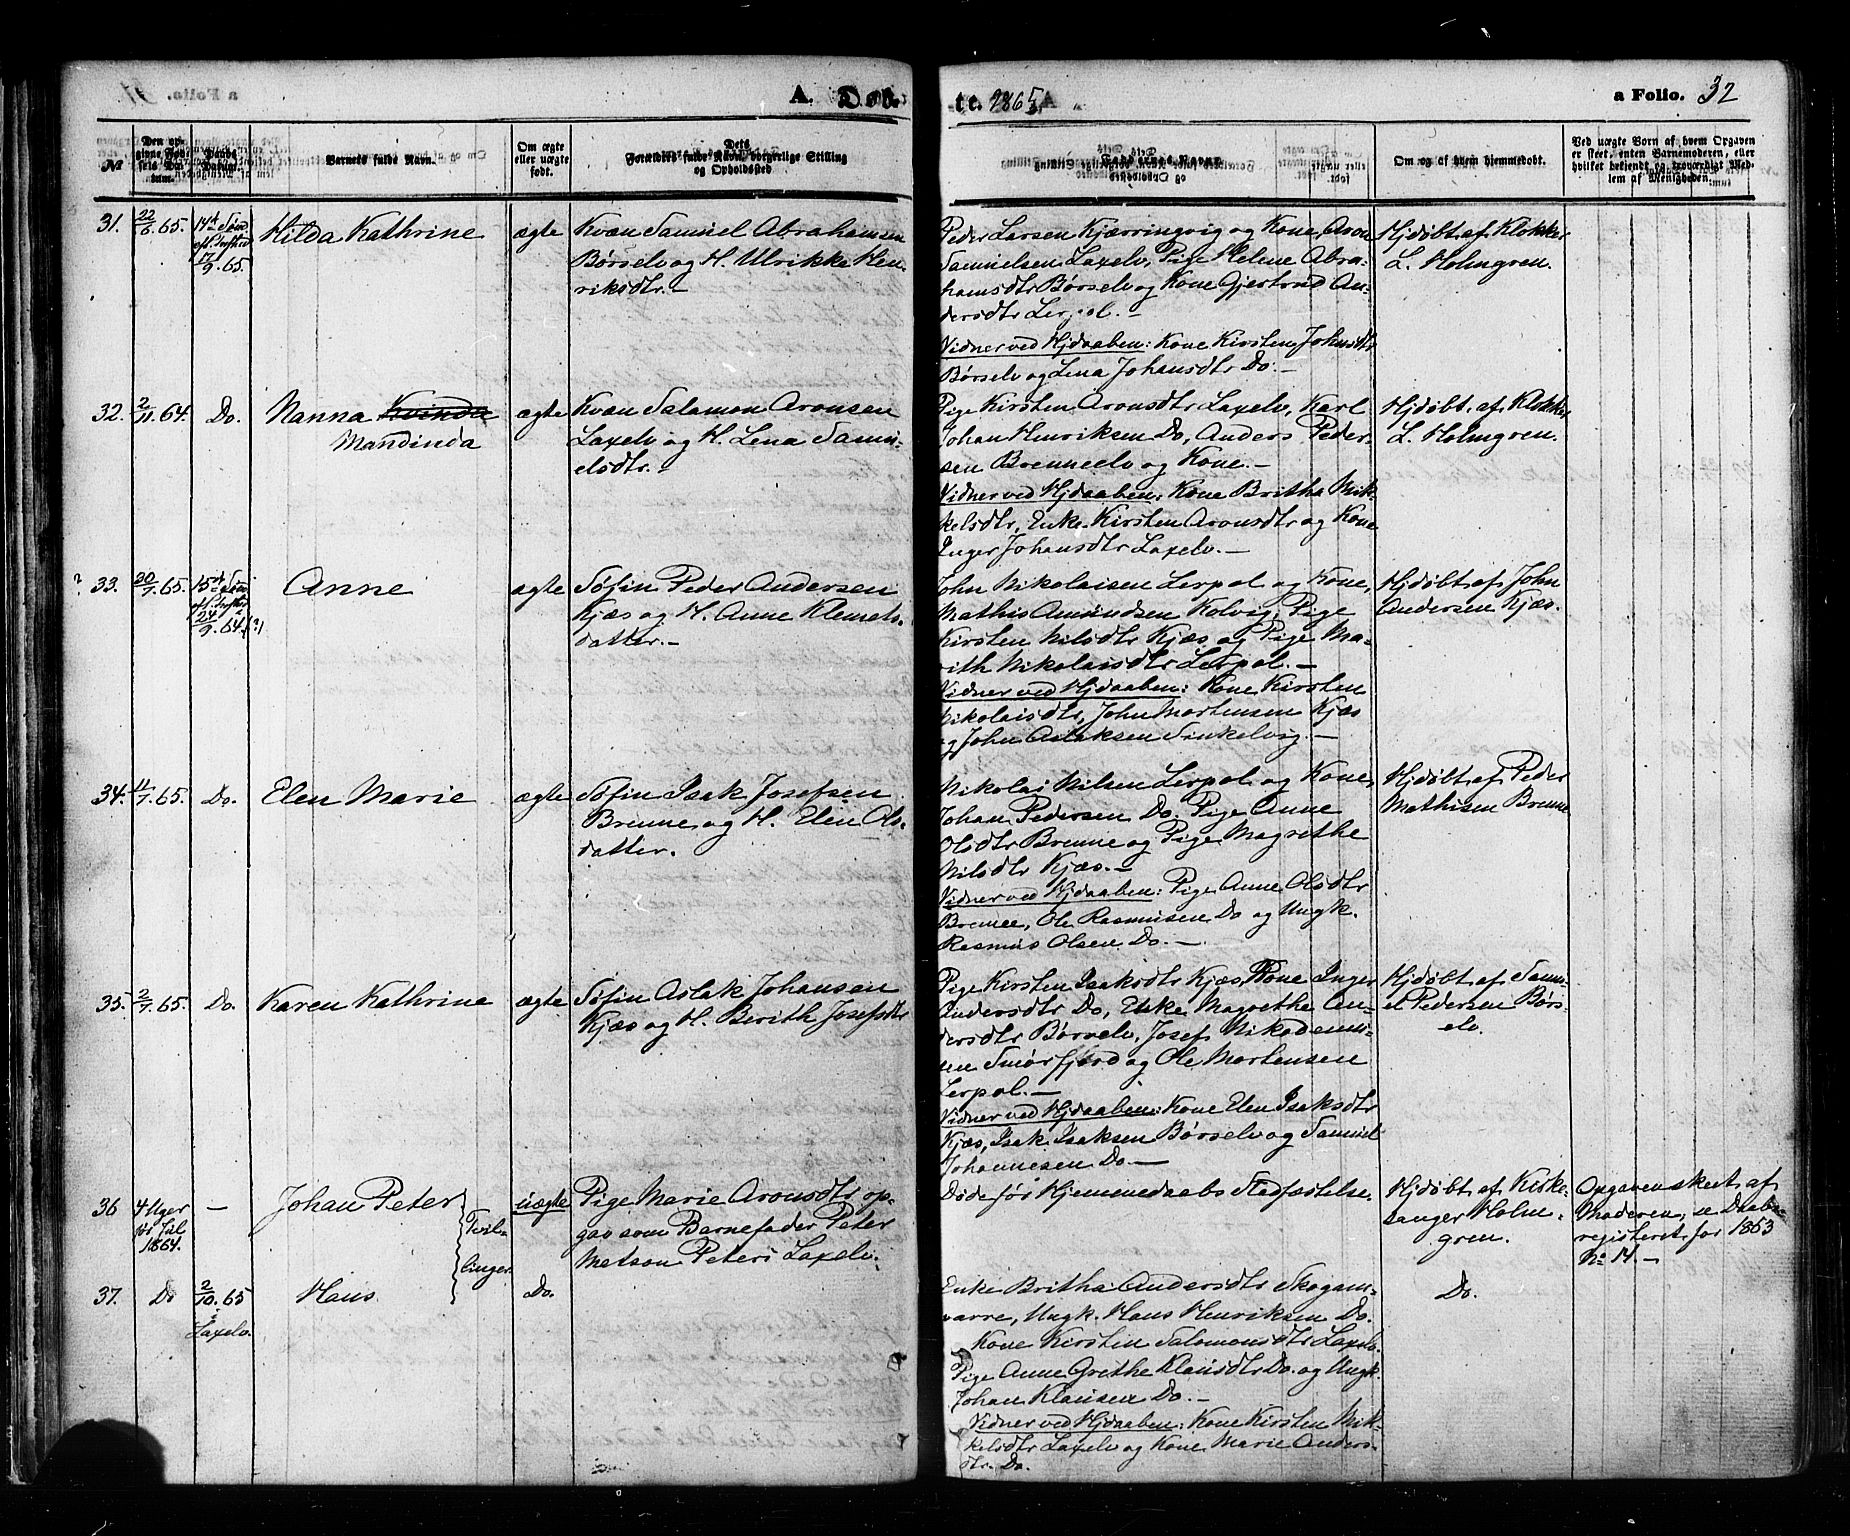 A. Døb-
te. 1865.
a Folio. 32
№
Den op-
givne Fød-
sels Da-
tum.
Daabs
Datum.
Barnets fulde Navn.
Om ægte
eller uægte
født.
Dets
Forældres fulde Navn, borgerlige Stilling
og Opholdssted
Faddernes Navne
Om og af hvem hjemmedøbt.
Ved uægte Børn af hvem Opgaven
er skeet, enten Barnemoderen, eller
hvilket bekjendt og troværdigt Med-
lem af Menigheden.
31.
22/6 65.
14de Sønd
eft. Trefold
17/9. 65.
Hilda Kathrine
ægte
Kvæn Samuel Abrahamsen
Børselv og H. Ulrikke Hen-
riksdtr.-
Peder Larsen Kjærringvig og Kone, Aron
Samuelsen Laxelv, Pige Helene Abra-
hamsdtr Børselv og Kone Gjertrud An-
dersdtr Lerpol.-
Vidner ved Hjdaaben: Kone Kirsten Johnsdtr
Børselv og Lena Johansdtr Do.-
Hjdøbt af Klokker
L. Holmgren.
32.
2/11. 64.
Do.
Nanna Kvinda
Mandinda
ægte
Kvæn Salamon Aronsen
Laxelv og H. Lena Samu-
elsdtr.-
Pige Kirsten Aronsdtr Laxelv, Karl
Johan Henriksen Do, Anders Peder-
sen Brenneelv og Kone.-
Vidner ved Hjdaaben: Kone Britha Mik-
kelsdtr, Enke Kirsten Aronsdtr og Kone
Inger Johansdtr Laxelv.-
Hjdøbt af Klokker
L. Holmgren.
? 33.
30/7. 65.
15de Sønd
eft. Trefold
24/9. 64.(?)
Anne
ægte
Søfin Peder Andersen
Kjæs og H. Anne Klemets-
datter.-
John Nikolaisen Lerpol og Kone,
Mathis Amundsen Kolvig, Pige
Kirsten Nilsdtr Kjæs og Pige Ma-
rith Nikolaisdtr Lerpol.-
Vidner ved Hjdaaben: Kone Kirsten
Nikolaisdtr, John Mortensen Kjæs
og John Aslaksen Sinkelvig.-
Hjdøbt af John
Andersen Kjæs.
34.
11/7. 65.
Do.
Elen Marie
ægte
Søfin Isak Josefsen
Brenne og H. Elen Ols-
datter.
Nikolai Nilsen Lerpol og Kone,
Johan Pedersen Do. Pige Anne
Olsdtr Brenne og Pige Magrethe
Nilsdtr Kjæs.-
Vidner ved Hjdaaben: Pige Anne Olsdtr
Brenne, Ole Rasmusen Do og Ungk.
Rasmus Olsen Do.-
Hjdøbt af Peder
Mathisen Brenne
35.
2/7. 65.
Do.
Karen Kathrine
ægte
Søfin Aslak Johansen
Kjæs og H. Berith Josefsdtr
Pige Kirsten Isaksdtr Kjæs, Kone Inger
Andersdtr Do, Enke Magrethe An-
dersdtr Børselv, Josef Nikodemu-
sen Smørfjord og Ole Mortensen
Lerpol.-
Vidner ved Hjdaaben: Kone Elen Isaksdtr
Kjæs, Isak Isaksen Børselv og Samuel
Johannesen Do.-
Hjdøbt af Samu-
el Pedersen Børs-
elv.
36
4 Uger
før Jul
1864.
-
Johan Peter
Tvil-
linger.
uægte
Pige Marie Aronsdtr op-
gav som Barnefader Peter
Matson Peters Laxelv.
Døde før Hjemmedaabs Stadfæstelse.
Hjdøbt af Kirke-
sanger Holm-
gren.
Opgaven skeet af
Moderen, se Daabs-
registeret for 1853
No 14.-
37.
Do
2/10. 65
i
Laxelv.
Hans.
Do.
Enke Britha Andersdtr Skogam-
varre, Ungk. Hans Henriksen Do.
Kone Kirsten Salomonsdtr Laxelv.
Pige Anne Grethe Klausdtr Do. og Ungk
Johan Klausen Do.-
Vidner ved Hjdaaben: Kone Kirsten Mik-
kelsdtr Laxelv og Kone Marie Anders-
dtr. Do.
Do.